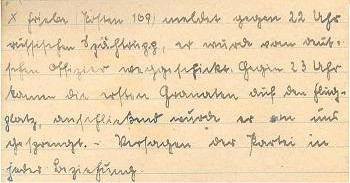 X Friebe Posten 109) meldet gegen 22 Uhr
russischen Spähtrupp, er wurde vom deut-
schen Offizier weggeschickt. Gegen 23 Uhr
kamen die ersten Granaten auf den Flug-
platz, anschließend wurde er von uns
gesprengt. - Versagen der Partei in
jeder Beziehung.